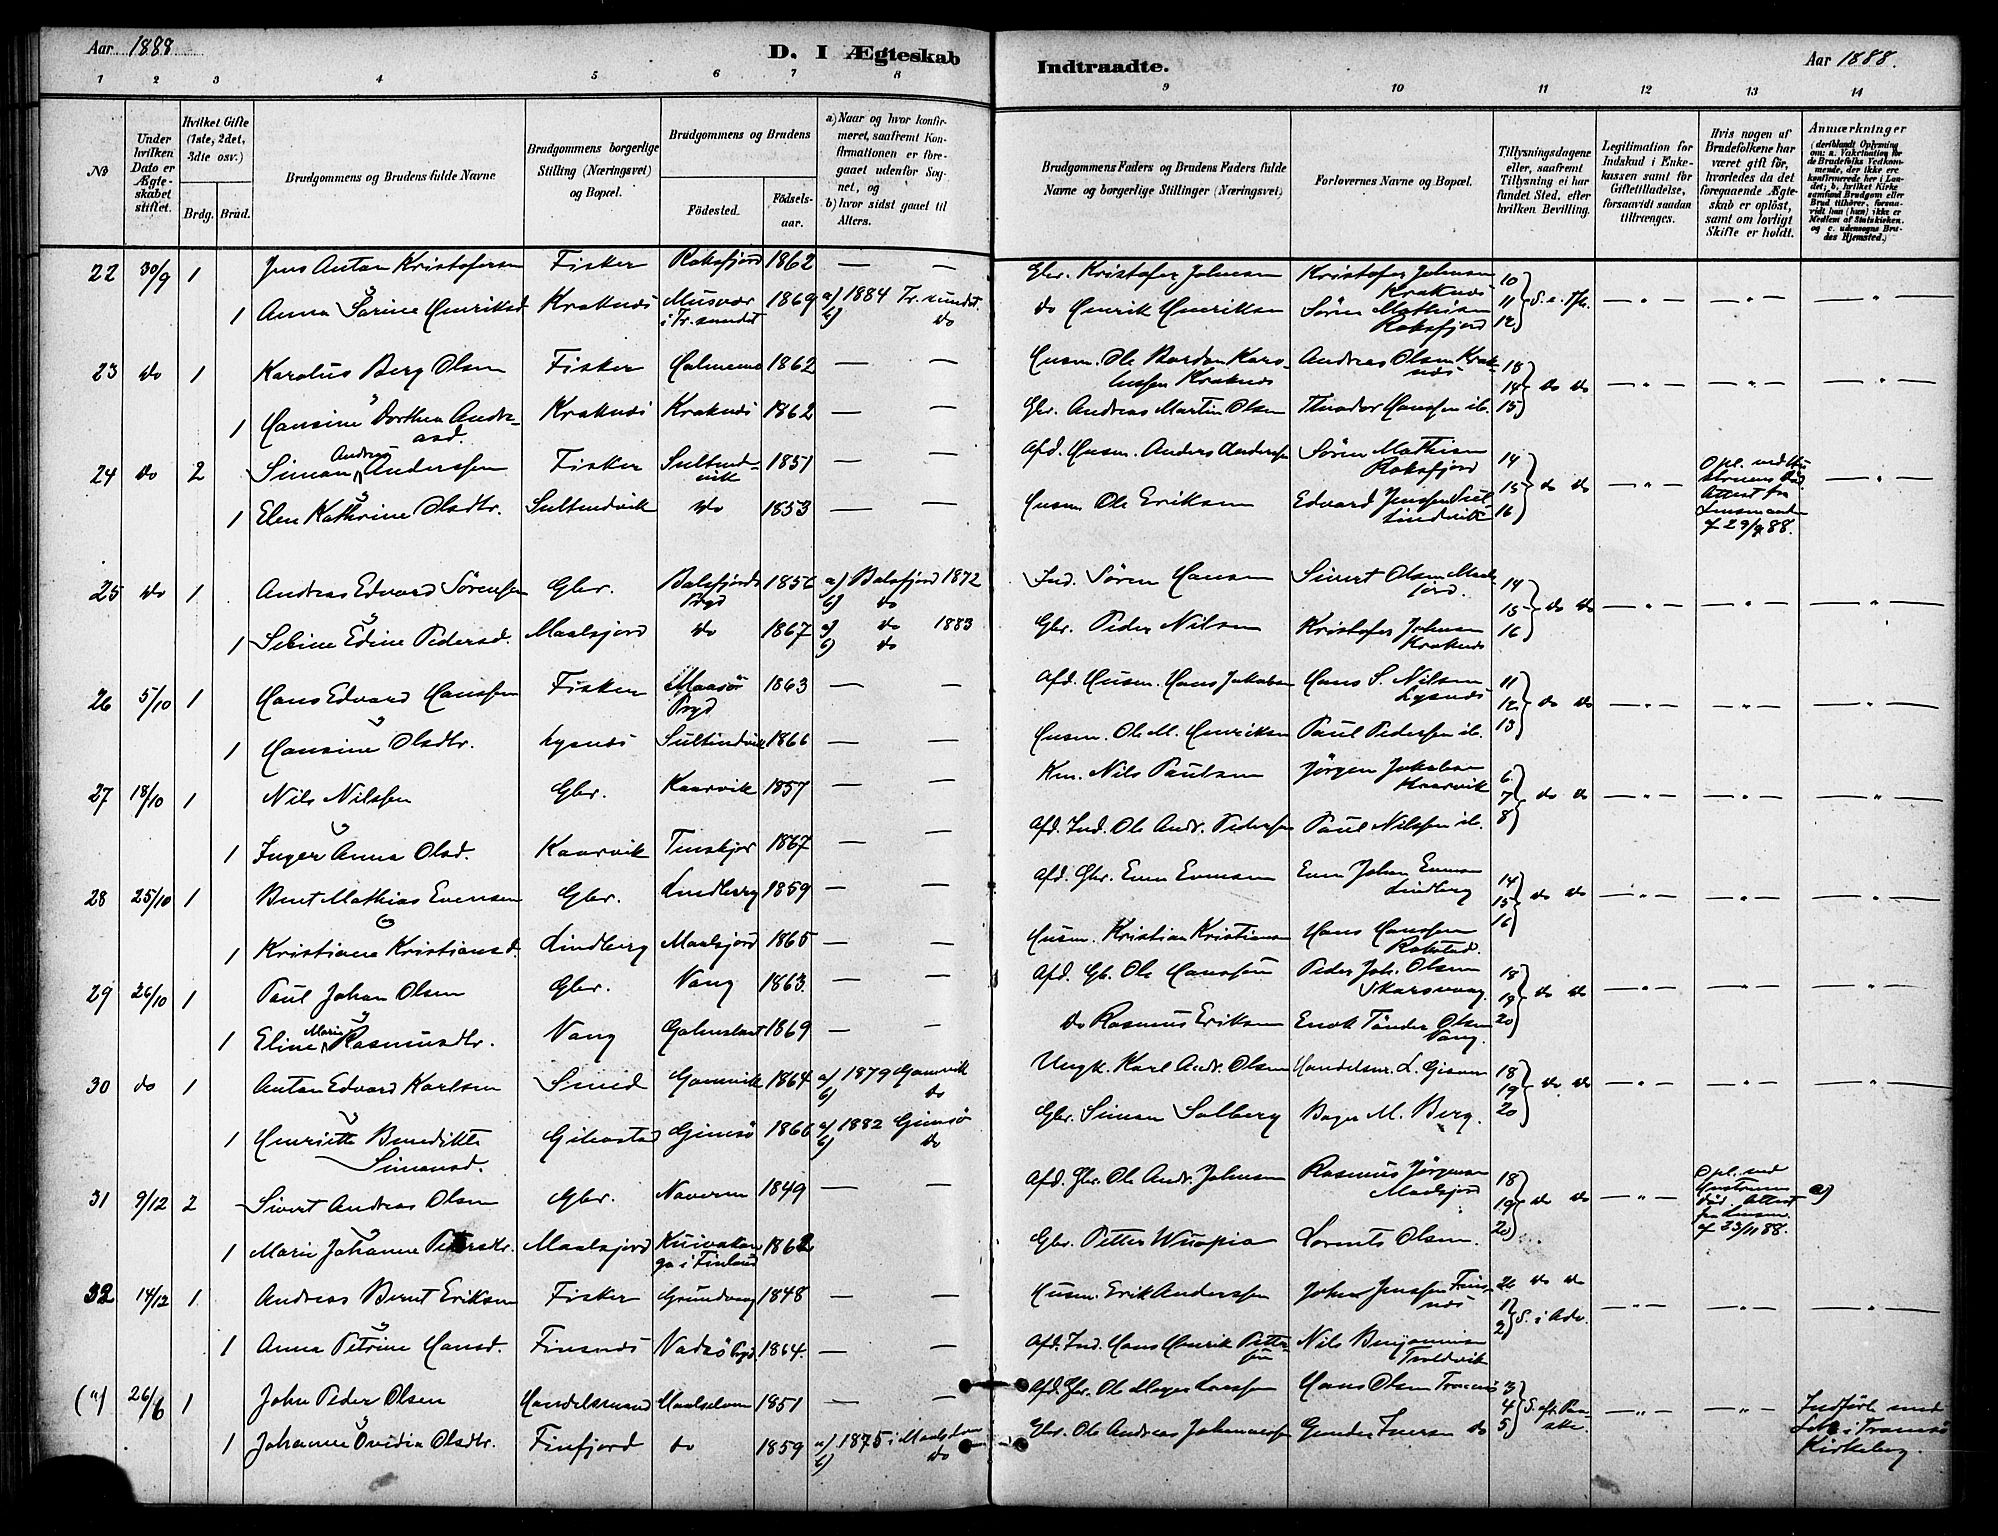 Aar 1888
D. I Ægteskab
Indtraadte.
Aar 1888.
1 2 3 4 5 6 7 8
9 10 11 12 13 14
No
Under hvilken Dato er Ægteskabet stiftet.
Hvilket Gifte (1ste, 2det, 3die osv.)
Brdg. Brud.
Brudgommens og Brudens fulde Navne
Brudgommens borgerlige Stilling (Næringsvei) og Bopæl.
Brudgommens og Brudens
Fødested.
Fødselsaar.
a) Naar og hvor konfirmeret, saafremt Konfirmationen er foregaaet udenfor Sognet, og
b) hvor sidst gaaet til Alters.
Brudgommens Faders og Brudens Faders fulde Navne og borgerlige Stillinger (Næringsvei)
Forlovernes Navne og Bopæl.
Tillysningsdagene eller, saafremt Tillysning ei har fundet Sted, efter hvilken Bevilling.
Legitimation for Indskud i Enkekassen samt for Giftetilladelse, forsaavidt saadan tiltrænges.
Hvis nogen af Brudefolkene har været gift før, hvorledes da det foregaaende Ægteskab er opløst, samt om lovligt Skifte er holdt.
Anmærkninger (deriblandt Oplysning om: a. Vakcination for de Brudefolks Vedkommende, der ikke ere konfirmerede her i Landet; b. hvilket Kirkesamfund Brudgom eller Brud tilhører, forsaavidt han (hun) ikke er Medlem af Statskirken, og c. udensogns Brudes Hjemsted.)
22 30/9 1 Jens Anton Kristofersen Fisker Roksfjord 1862 — — Gbr. Kristofer Johnsen Kristofer Johnsen Kraknes 10
1 Anna Sørine Henriksd. Kraknes Musvær i Tr.sundet 1869 a) 1884 Tr.sundet. b) do do Henrik Henriksen Søren Mathisen Roksfjord 11 12
23 do 1 Karolus Berg Olsen Fisker 1862 — — Husm. Ole Bardon Karolussen Kraknes Andreas Olsen Kraknes 14 do do
1 Hansine Dorthea Andreasd. Kraknes Kraknes 1862 — — Gbr. Andreas Martin Olsen Theodor Hanssen ib. 15
24 do 2 Simon Andreas Anderssen Fisker Sultindvik 1851 — — Afd. Husm. Anders Anderssen Søren Mathisen Roksfjord 14
1 Elen Kathrine Olsdtr. Sultindvik do 1853 — — Husm. Ole Eriksen Edvard Jenssen Sultindvik 15 16 do do
af 29/9 88.
25 do 1 Andreas Edvard Sørensen Gbr. Balsfjords Pgd 1856 a) Balsfjord 1872 b) do Ind. Søren Hansen Sivert Olsen Maalsjord. 14
1 Sebine Edine Pedersd. Maalsjord do 1867 a) do 1883 b) do Gbr. Peder Nilsen Kristofer Johnsen Kraknes 15 16 do do
26 5/10 1 Hans Edvard Hanssen Fisker Maasø Pgd 1863 — — Afd. Husm. Hans Jakobsen Hans S. Nilsen Lysnes 11
1 Hansine Olsdtr. Lysnes Sultindvik 1866 — — Husm. Ole M. Henriksen Paul Pedersen ib. 12 13 do do
27 18/10 1 Nils Nilssen Gbr. Kaarvik 1857 — — Km. Nils Paulsen Jørgen Jakobsen Kaarvik 6
1 Inger Anna Olsd. Kaarvik Tinskjer 1867 — — Afd. Ind. Ole Andr. Pederssen Paul Nilssen ib. 7 8 do do
28 25/10 1 Bent Mathias Evensen Gbr. Lindberg 1859 — — Afd. Gbr. Even Evensen Even Johan Evensen Lindberg 14
1 Kristiane Kristiansd. Lindberg Maalsjord 1865 — — Husm. Kristian Kristiansen Hans Hanssen Rokstad. 15 16 do do
29 26/10 1 Paul Johan Olsen Gbr. Vang 1863. — — Afd. Gb. Ole Hanssen Peder Joh. Olsen Skarsvaag 18
1 Eline Marie Rasmusdtr. Vang 1869 — — do Rasmus Eriksen Enok Tønder Olsen Vang. 19 20 do do
30 do 1 Anton Edvard Karlsen Smed Gamvik 1864 a) 1879 Gamvik b) do Ungk. Karl Andr. Olsen Handelsm. L. 18
1 Henriette Benedikte Simonsd. Gibostad Gimsø 1866 a) 1882 Gimsø b) do Gbr. Simon Solberg Bager M. Berg. 19 20 do do
31 9/12 2 Sivert Andreas Olsen Gbr. 1849 — — Afd. Gbr. Ole Andr. Johnsen Rasmus Jørgensen Maalsjord 18
1 Marie Johanne Petersdtr. Maalsjord i Finland 1862 Gbr. Petter Wuopio Lorents Olsen. 19 20 do do
Opl. ved Hustruens død Attest fra Lensm. a)
32 14/12 1. Andreas Bernt Eriksen Fisker Grundvaag 1848 — — Husm. Erik Anderssen John Jenssen Finsnes 26 do do
1 Anna Petrine Hansd. Finsnes Vadsø Pgd. 1864. — — Afd. Ind. Hans Henrik Pettersen Nils Benjaminsen Troldvik 1 2 S. i Adv.
(") 26/6 1 John Peder Olsen Handelsmand Maalselven 1851 — — Afd. Gbr. Ole Hans Olsen 3
1 Johanne Ovidia Olsdtr. Finfjord do 1859 a) 1875 i b) do Gbr. Ole Andreas Johannessen Iversen do 4 5
Indført i Tromsø Kirkebog.